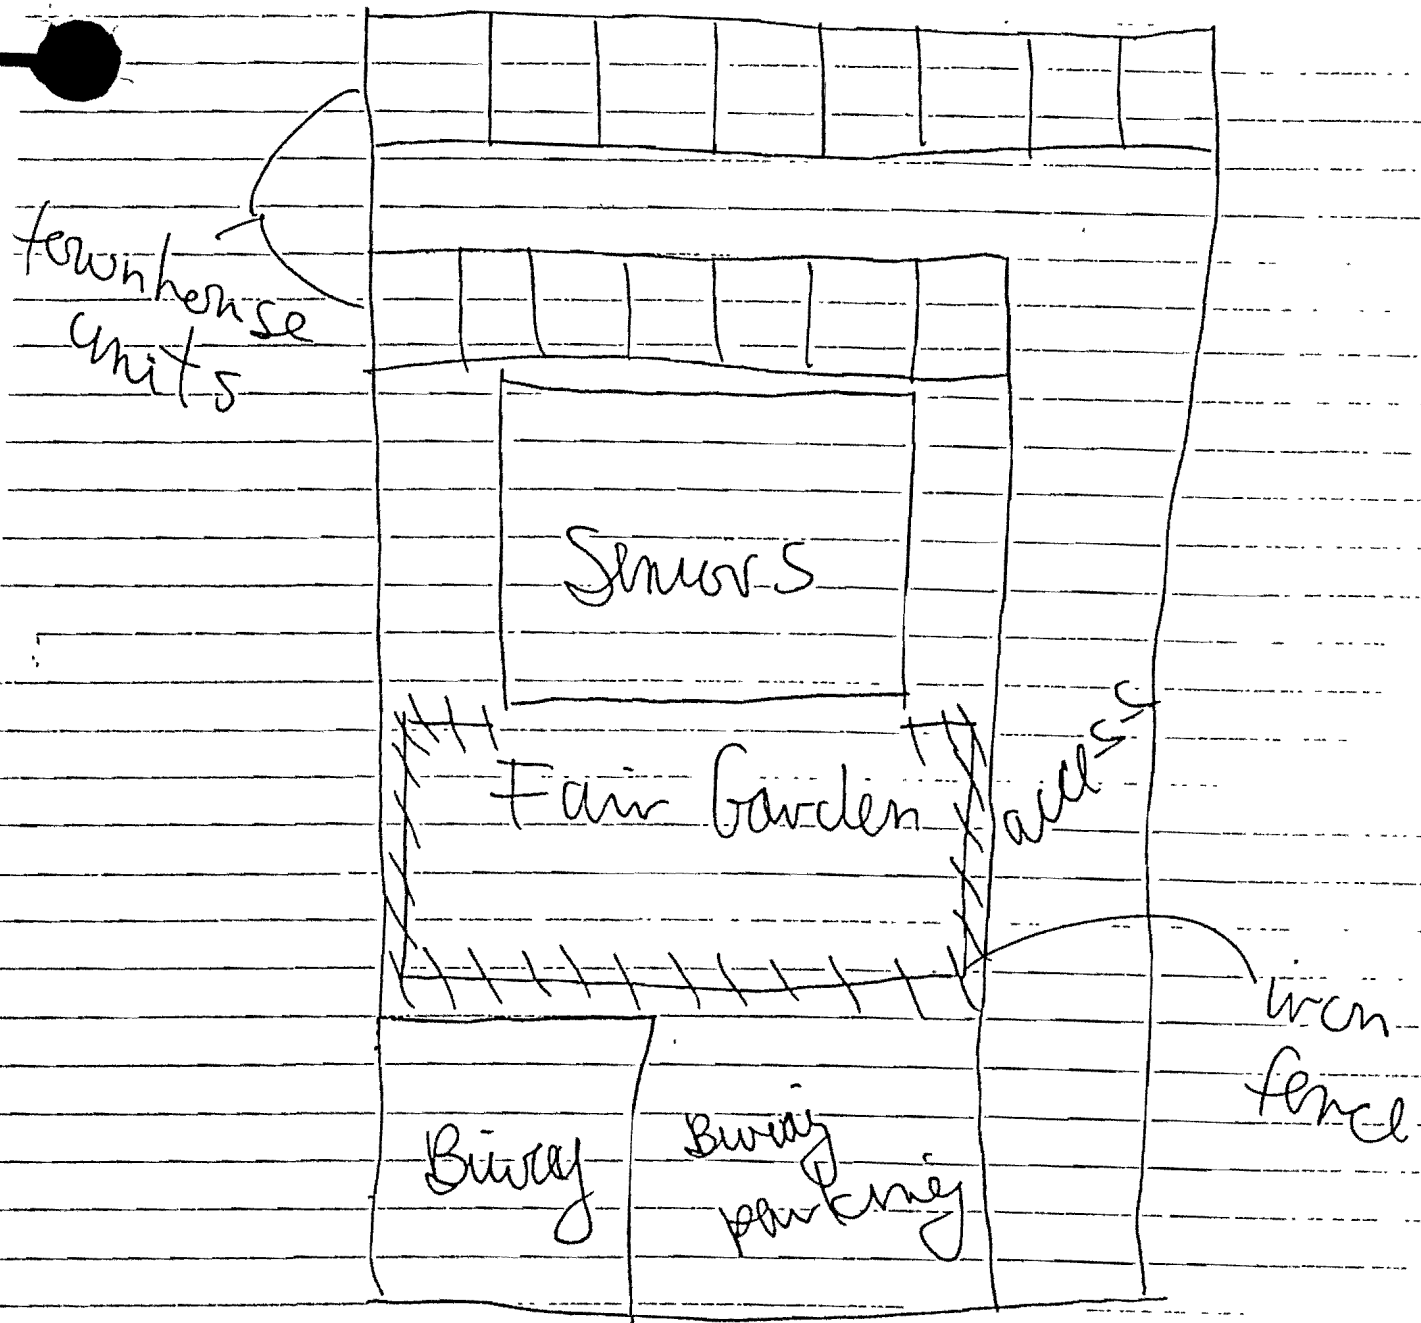 townhouse
units
Seniors
Fair Garden
access
iron
fence
Biway
Biway
parking